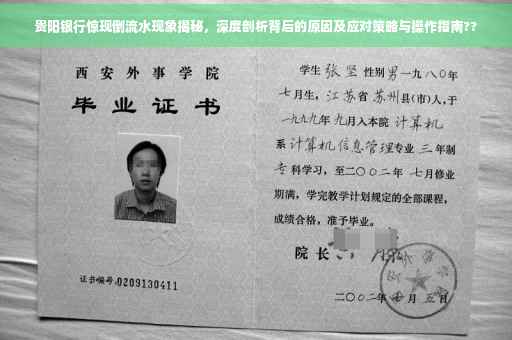 贵阳银行惊现倒流水现象揭秘，深度剖析背后的原因及应对策略与操作指南??
西安外事学院
毕业证书
证书编号:0209130411
学生张坚性别男一九八〇年
七月生，江苏省苏州县(市)人,于
一九九九年九月入本院计算机
系计算机信息管理专业三年制
专科学习，至二〇〇二年七月修业
期满，学完教学计划规定的全部课程，
成绩合格，准予毕业。
院长
二〇〇二年七月五日